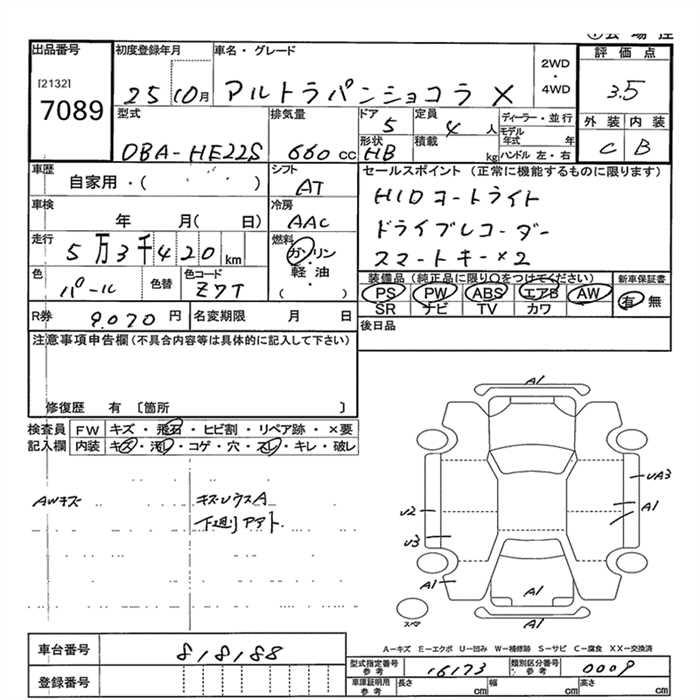 出品番号
[2132]
7089
初度登録年月
25 10月
車名・グレード
アルトラパンショコラ X
2WD
・
4WD
評価点
3.5
外装 内装
C B
型式
DBA-HE22S
排気量
660 cc
ドア
5
定員
4 人
形状
HB
積載
kg
ディーラー・並行
モデル年式 年
ハンドル 左・右
車歴
自家用・( )
シフト
AT
車検
年 月( 日)
冷房
AAC
走行
5万3千420 km
燃料
ガソリン
・
軽油
( )
色
パール
色替
色コード
Z7T
R券 9,070 円
名変期限 月 日
セールスポイント (正常に機能するものに限ります)
HIDオートライト
ドライブレコーダー
スマートキー×2
装備品 (純正品に限り○をつけてください)
PS PW ABS エアB AW
SR ナビ TV カワ
新車保証書
有 無
後日品
注意事項申告欄(不具合内容等は具体的に記入して下さい)
修復歴 有 〔箇所 〕
検査員記入欄
FW キズ・飛石・ヒビ割・リペア跡・×要
内装 キズ・汚レ・コゲ・穴・スレ・キレ・破レ
AWキズ
キズ
下廻り
A1
UA3
A1
U2
U3
A1
A1
A1
スペア
A－キズ E－エクボ U－凹み W－補修跡 S－サビ C－腐食 XX－交換済
車台番号 818188
登録番号
型式指定番号 参考 16173
類別区分番号 参考 0009
車庫証明用 参考 長さ cm 幅 cm 高さ cm